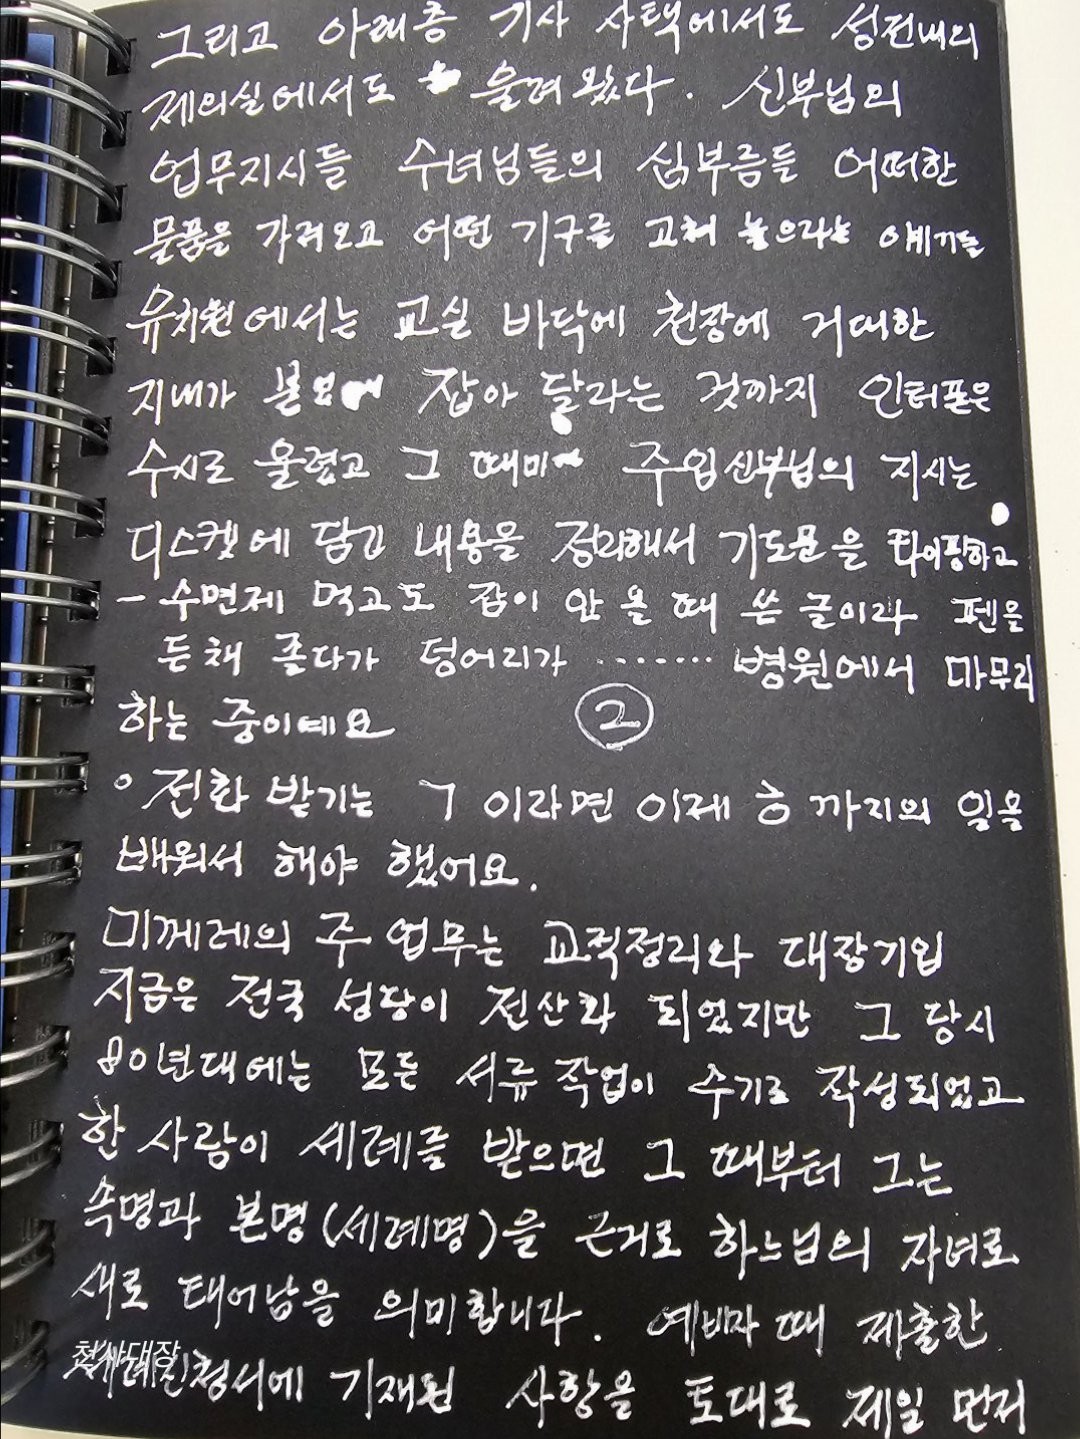 그리고 아래층 기사 사택에서도 성전내의
제의실에서도 울려 왔다. 신부님의
업무지시들 수녀님들의 심부름들 어떠한
물품을 가져오고 어떤 기구를 고쳐 놓으라는 얘기들
유치원에서는 교실 바닥에 천장에 거대한
지네가 잡아 달라는 것까지 인터폰은
수시로 울렸고 그 때마다 주임신부님의 지시는
디스켓에 담긴 내용을 정리해서 기도문을 타이핑하고
- 수면제 먹고도 잠이 안 올 때 쓴 글이라 펜을
든채 졸다가 덩어리가 ........ 병원에서 마무리
하는 중이예요 ②
° 전화 받기는 ㄱ 이라면 이제 ㅎ 까지의 일을
배워서 해야 했어요.
미카엘의 주 업무는 교적정리와 대장기입
지금은 전국 성당이 전산화 되었지만 그 당시
80년대에는 모든 서류 작업이 수기로 작성되었고
한 사람이 세례를 받으면 그 때부터 그는
속명과 본명(세례명)을 근거로 하느님의 자녀로
새로 태어남을 의미합니다. 예비자 때 제출한
천사대장
신청서에 기재된 사항을 토대로 제일 먼저